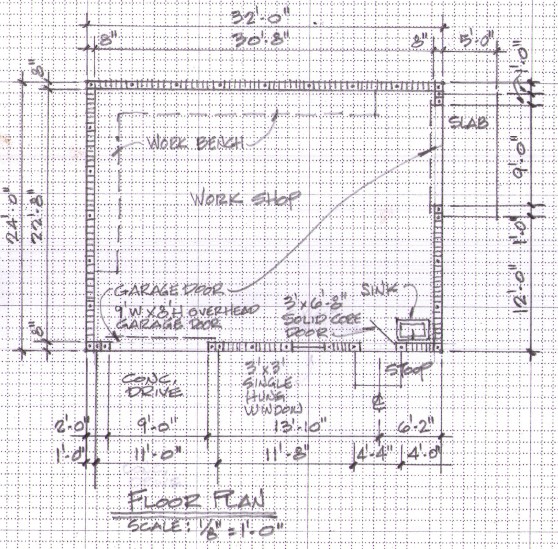 32'-0"
8" 30'-8" 8" 5'-0"
1'-0"
8"
SLAB
WORK BENCH
9'-0"
WORK SHOP
24'-0"
22'-8"
1'-0"
12'-0"
GARAGE DOOR
9'W X 8'H OVERHEAD
GARAGE DOOR
3' x 6'-8"
SOLID CORE
DOOR
SINK
8"
CONC.
DRIVE
3' x 3'
SINGLE
HUNG
WINDOW
STOOP
℄
2'-0" 9'-0" 13'-10" 6'-2"
1'-0" 11'-0" 11'-8" 4'-4" 4'-0"
FLOOR PLAN
SCALE: 1/8" = 1'-0"